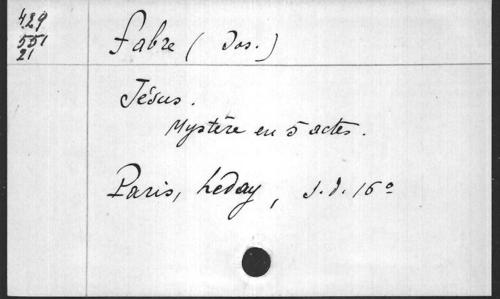 429
551
21
Fabre (Jos.)
Jésus.
Mystère en 5 actes.
Paris, Leday, s.d. 16°